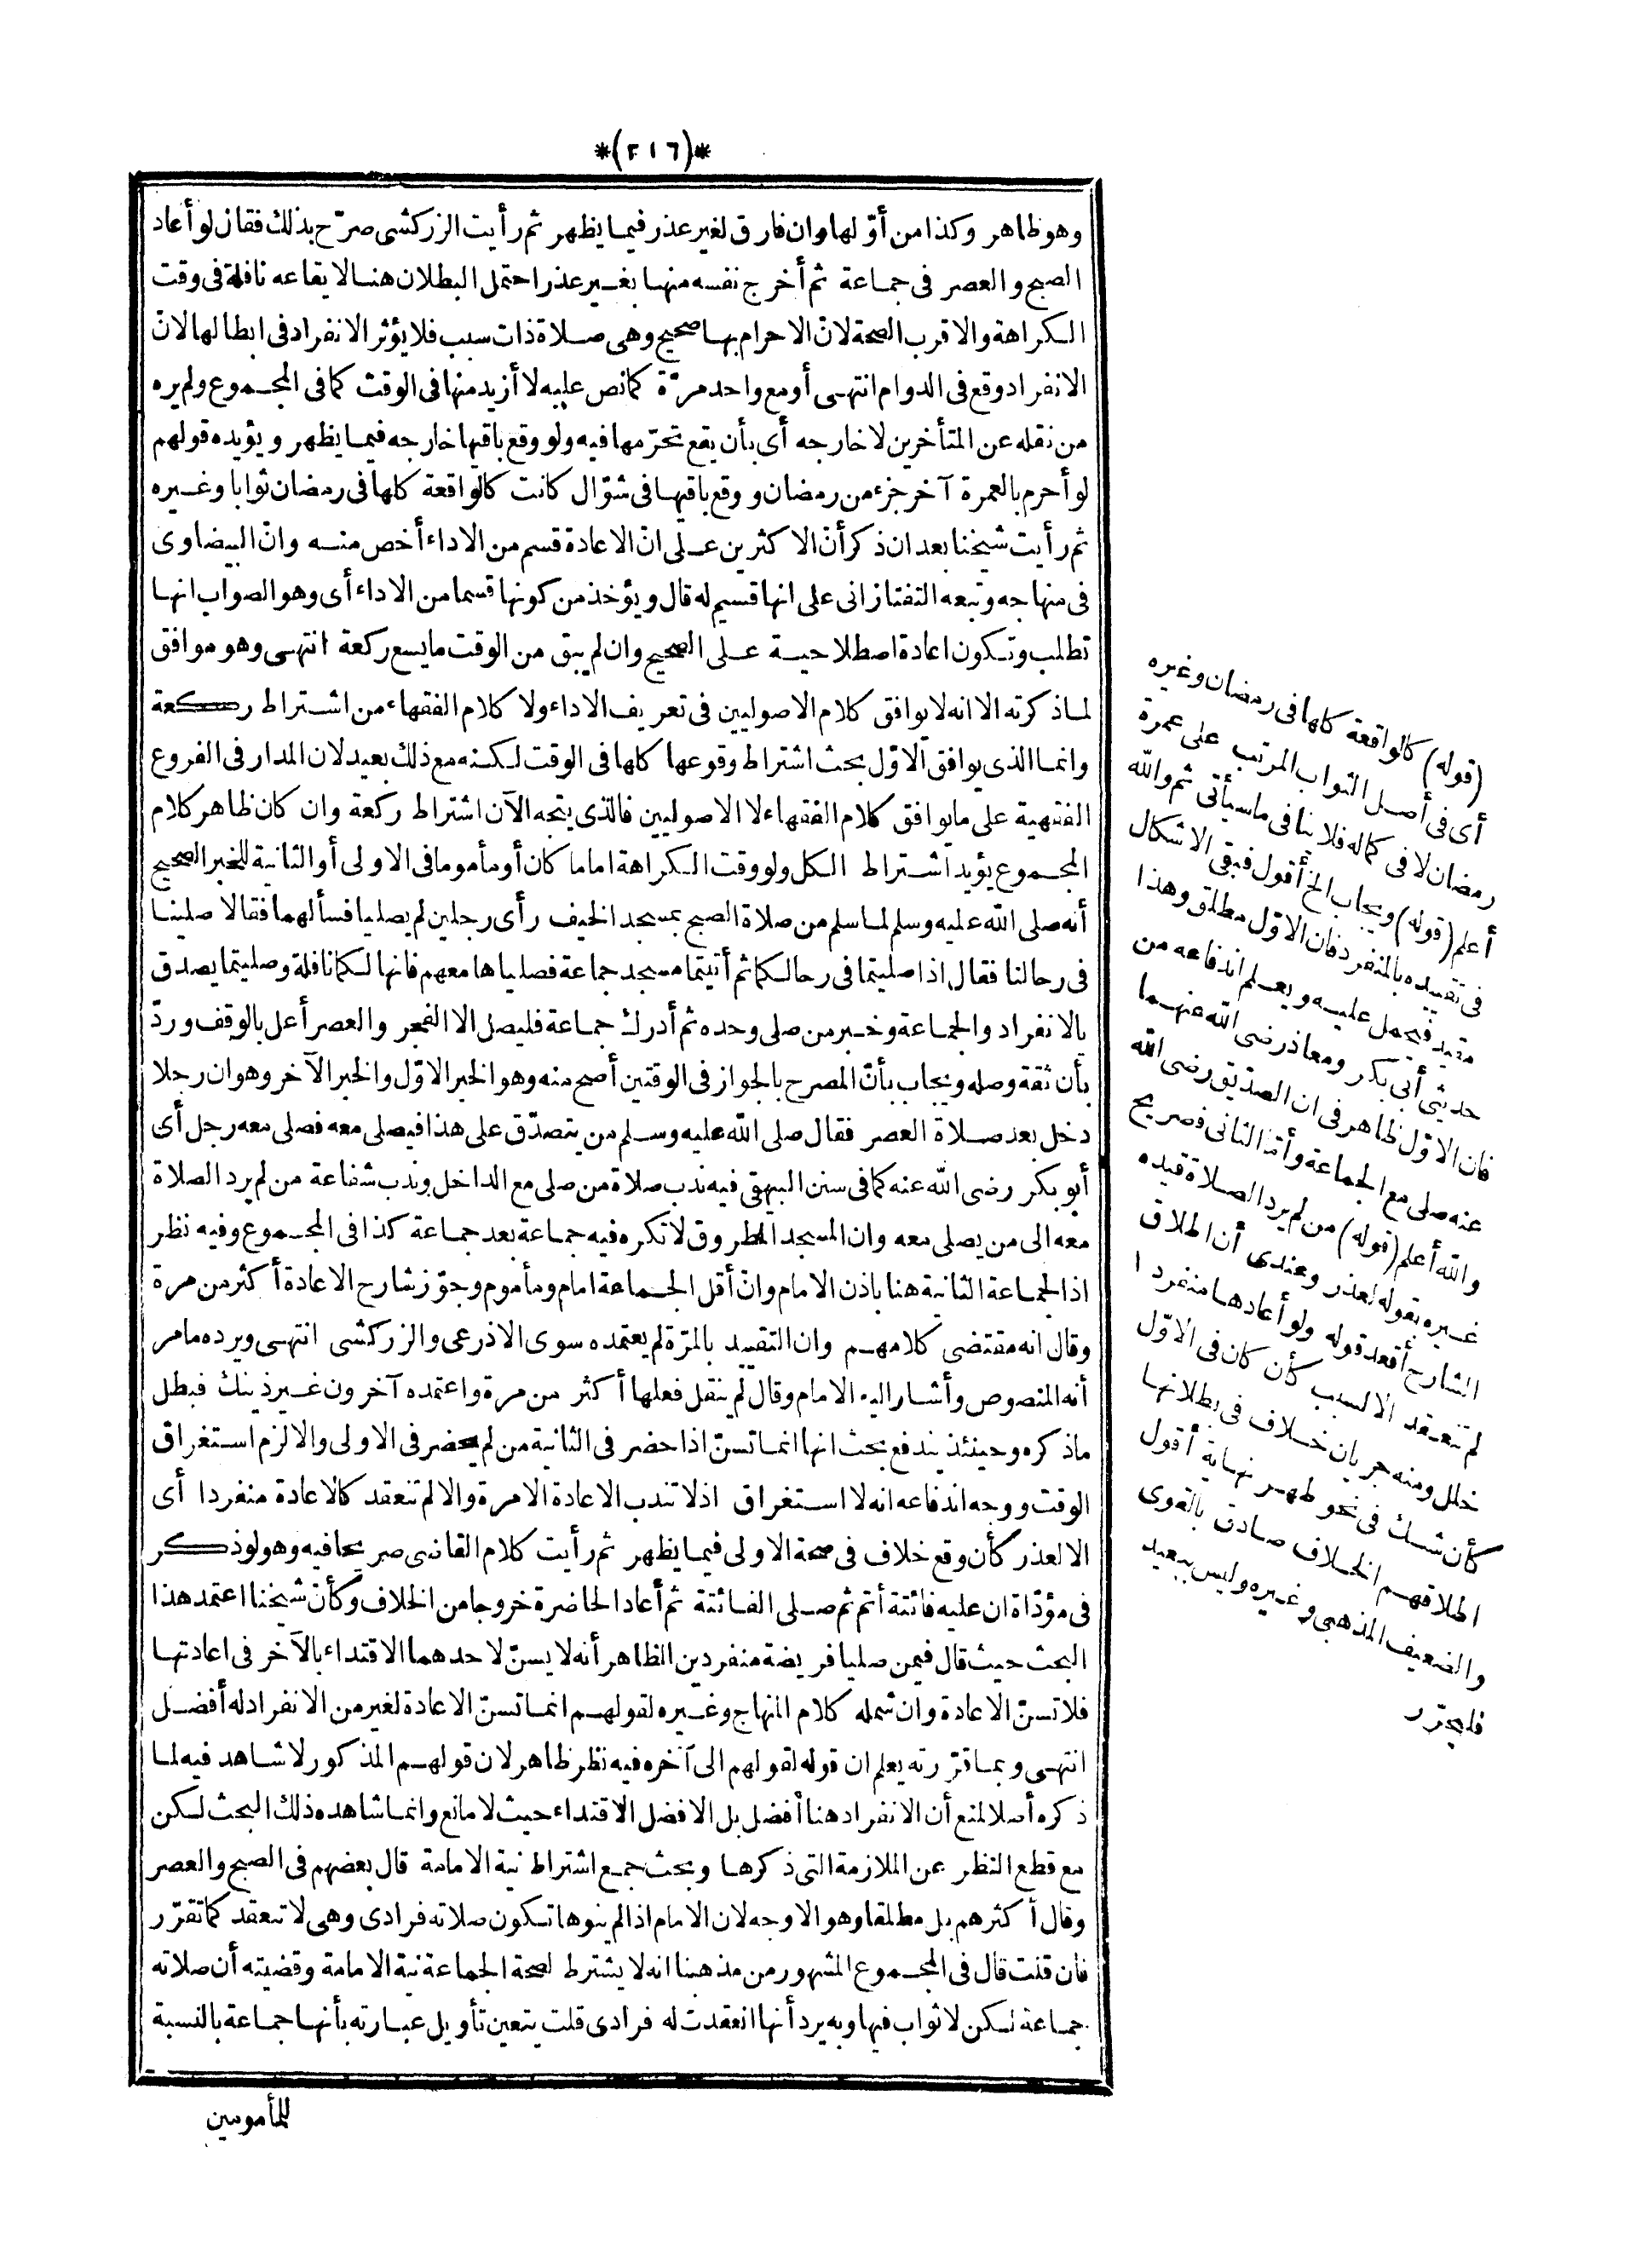 *(٢١٦)*
وهو ظاهر وكذا من أوّلها وان فارق لغير عذر فيما يظهر ثم رأيت الزركشى صرّح بذلك فقال لو أعاد
الصبح والعصر فى جماعة ثم أخرج نفسه منها بغير عذر احتمل البطلان هنا لايقاعه نافلة فى وقت
الكراهة والاقرب الصحة لانّ الاحرام بها صحيح وهى صلاة ذات سبب فلا يؤثر الانفراد فى ابطالها لانّ
الانفراد وقع فى الدوام انتهى أو مع واحد مرّة كما نص عليه لا أزيد منها فى الوقت كما فى المجموع ولم يره
من نقله عن المتأخرين لا خارجه أى بأن يقع تحرّمها فيه ولو وقع باقيها خارجه فيما يظهر ويؤيده قولهم
لو أحرم بالعمرة آخر جزء من رمضان ووقع باقيها فى شوّال كانت كالواقعة كلها فى رمضان ثوابا وغيره
ثم رأيت شيخنا بعد ان ذكر أن الاكثرين على انّ الاعادة قسم من الاداء أخص منه وانّ البيضاوى
فى منهاجه وتبعه التفتازانى على انها قسيم له قال ويؤخذ من كونها قسما من الاداء أى وهو الصواب انها
تطلب وتكون اعادة اصطلاحية على الصحيح وان لم يبق من الوقت ما يسع ركعة انتهى وهو موافق
لما ذكرته الا انه لا يوافق كلام الاصوليين فى تعريف الاداء ولا كلام الفقهاء من اشتراط ركعة
وانما الذى يوافق الاوّل بحث اشتراط وقوعها كلها فى الوقت لكنه مع ذلك بعيد لان المدار فى الفروع
الفقهية على ما يوافق كلام الفقهاء لا الاصوليين فالذى يتجه الآن اشتراط ركعة وان كان ظاهر كلام
المجموع يؤيد اشتراط الكل ولو وقت الكراهة اماما كان أو مأموما فى الاولى أو الثانية للخبر الصحيح
أنه صلى الله عليه وسلم لما سلم من صلاة الصبح بمسجد الخيف رأى رجلين لم يصليا فسألهما فقالا صلينا
فى رحالنا فقال اذا صليتما فى رحالكما ثم أتيتما مسجد جماعة فصلياها معهم فانها لكما نافلة وصليتما يصدق
بالانفراد والجماعة وخبر من صلى وحده ثم أدرك جماعة فليصل الا الفجر والعصر أعل بالوقف وردّ
بأن ثقة وصله ويجاب بأنّ المصرح بالجواز فى الوقتين أصح منه وهو الخبر الاوّل والخبر الآخر وهو ان رجلا
دخل بعد صلاة العصر فقال صلى الله عليه وسلم من يتصدّق على هذا فيصلى معه فصلى معه رجل أى
أبو بكر رضى الله عنه كما فى سنن البيهقى فيه ندب صلاة من صلى مع الداخل وندب شفاعة من لم يرد الصلاة
معه الى من يصلى معه وان المسجد المطروق لا تكره فيه جماعة بعد جماعة كذا فى المجموع وفيه نظر
اذ الجماعة الثانية هنا باذن الامام وانّ أقل الجماعة امام ومأموم وجوّز شارح الاعادة أكثر من مرة
وقال انه مقتضى كلامهم وان التقييد بالمرّة لم يعتمده سوى الاذرعى والزركشى انتهى ويرده ما مر
أنه المنصوص وأشار اليه الامام وقال لم ينقل فعلها أكثر من مرة واعتمده آخرون غير ذينك فبطل
ما ذكره وحينئذ يندفع بحث انها انما تسنّ اذا حضر فى الثانية من لم يحضر فى الاولى والا لزم استغراق
الوقت ووجه اندفاعه انه لا استغراق اذ لا تندب الاعادة الا مرة والا لم تنعقد كالاعادة منفردا أى
الا لعذر كأن وقع خلاف فى صحة الاولى فيما يظهر ثم رأيت كلام القاضى صريحا فيه وهو لو ذكر
فى مؤدّاة ان عليه فائتة أتم ثم صلى الفائتة ثم أعاد الحاضرة خروجا من الخلاف وكأن شيخنا اعتمد هذا
البحث حيث قال فيمن صليا فريضة منفردين الظاهر أنه لا يسنّ لاحدهما الاقتداء بالآخر فى اعادتها
فلا تسنّ الاعادة وان شمله كلام المنهاج وغيره لقولهم انما تسنّ الاعادة لغير من الانفراد له أفضل
انتهى وبما قرّرته يعلم ان قوله لقولهم الى آخره فيه نظر ظاهر لان قولهم المذكور لا شاهد فيه لما
ذكره أصلا لمنع أن الانفراد هنا أفضل بل الافضل الاقتداء حيث لا مانع وانما شاهده ذلك البحث لكن
مع قطع النظر عن الملازمة التى ذكرها وبحث جمع اشتراط نية الامامة قال بعضهم فى الصبح والعصر
وقال أكثرهم بل مطلقا وهو الاوجه لان الامام اذا لم ينوها تكون صلاته فرادى وهى لا تنعقد كما تقرّر
فان قلت قال فى المجموع المشهور من مذهبنا انه لا يشترط لصحة الجماعة نية الامامة وقضيته أن صلاته
جماعة لكن لا ثواب فيها وبه يرد أنها انعقدت له فرادى قلت يتعين تأويل عبارته بأنها جماعة بالنسبة
للمأمومين
(قوله) كالواقعة كلها فى رمضان وغيره
أى فى أصل الثواب المرتب على عمرة
رمضان لا فى كماله فلا ينافى ما سيأتى ثم والله
أعلم (قوله) ويجاب الخ أقول فبقى الاشكال
فى تقييده بالمنفرد فان الاوّل مطلق وهذا
مقيد فيحمل عليه ويعلم اندفاعه من
حديثى أبى بكر ومعاذ رضى الله عنهما
فان الاوّل ظاهر فى ان الصدّيق رضى الله
عنه صلى مع الجماعة وأمّا الثانى فصريح
والله أعلم (قوله) من لم يرد الصلاة قيده
غيره بقوله لعذر وعندى أن اطلاق
الشارح أقعد قوله ولو أعادها منفردا
لم تنعقد الا لسبب كأن كان فى الاوّل
خلل ومنه جريان خلاف فى بطلانها
كأن شك فى نحو طهر نهاية أقول
اطلاقهم الخلاف صادق بالقوى
والضعيف المذهبى وغيره وليس ببعيد
فليحرّر